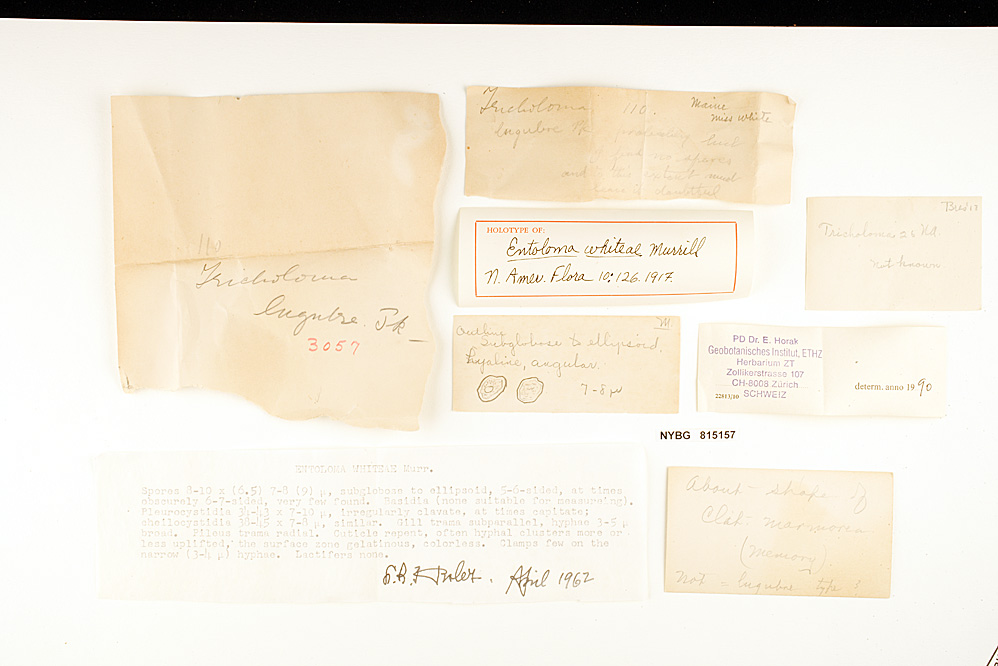 110
Tricholoma
lugubre Pk
3057
Tricholoma 110. Maine
Miss White
lugubre Pk probably but
find no spores
and to this extent must
leave it doubtful
HOLOTYPE OF:
Entoloma whiteae Murrill
N. Amer. Flora 10:126. 1917.
M
Outline
Subglobose to ellipsoid,
hyaline, angular.
7-8 µ
Tricholoma 26
not known
PD Dr. E. Horak
Geobotanisches Institut, ETHZ
Herbarium ZT
Zollikerstrasse 107
CH-8008 Zürich
SCHWEIZ
22813/10
determ. anno 1990
NYBG 815157
ENTOLOMA WHITEAE Murr.
Spores 8-10 x (6.5) 7-8 (9) µ, subglobose to ellipsoid, 5-6-sided, at times
obscurely 6-7-sided, very few found. Basidia (none suitable for measuring).
Pleurocystidia 34-43 x 7-10 µ, irregularly clavate, at times capitate;
cheilocystidia 38-45 x 7-8 µ, similar. Gill trama subparallel, hyphae 3-5 µ
broad. Pileus trama radial. Cuticle repent, often hyphal clusters more or
less uplifted, the surface zone gelatinous, colorless. Clamps few on the
narrow (3-4 µ) hyphae. Lactifers none.
April 1962
About - shape of
Clit. marmorea
(memory)
Not = lugubre type!